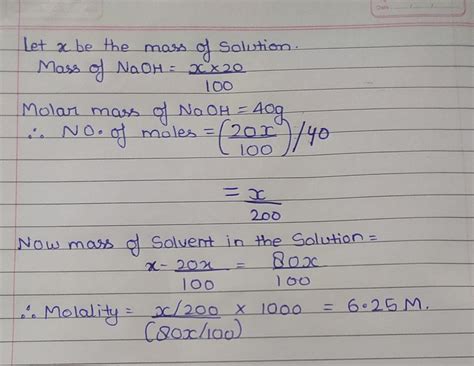 Let x be the mass of Solution.
Mass of NaOH = x×20/100
Molar mass of NaOH = 40g
∴ NO. of moles = (20x/100)/40
= x/200
Now mass of Solvent in the Solution =
x - 20x/100 = 80x/100
∴ Molality = x/200/(80x/100) × 1000 = 6.25 M.